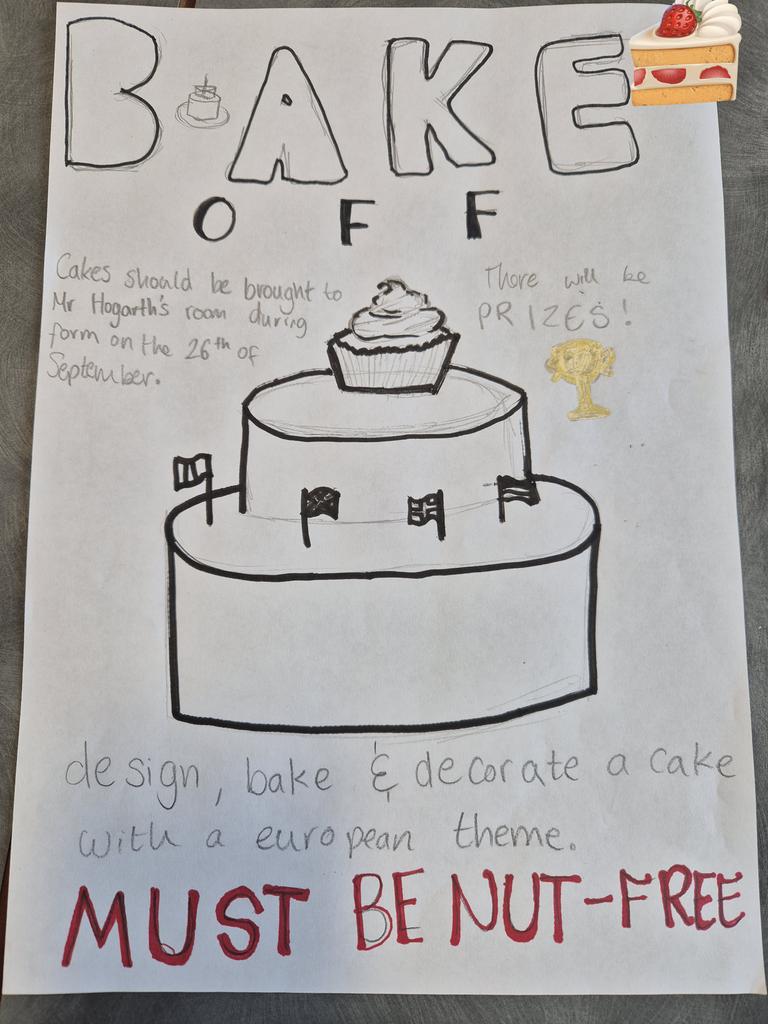 BAKE
OFF
Cakes should be brought to
Mr Hogarth's room during
form on the 26th of
September.
There will be
PRIZES!
design, bake & decorate a cake
with a european theme.
MUST BE NUT-FREE